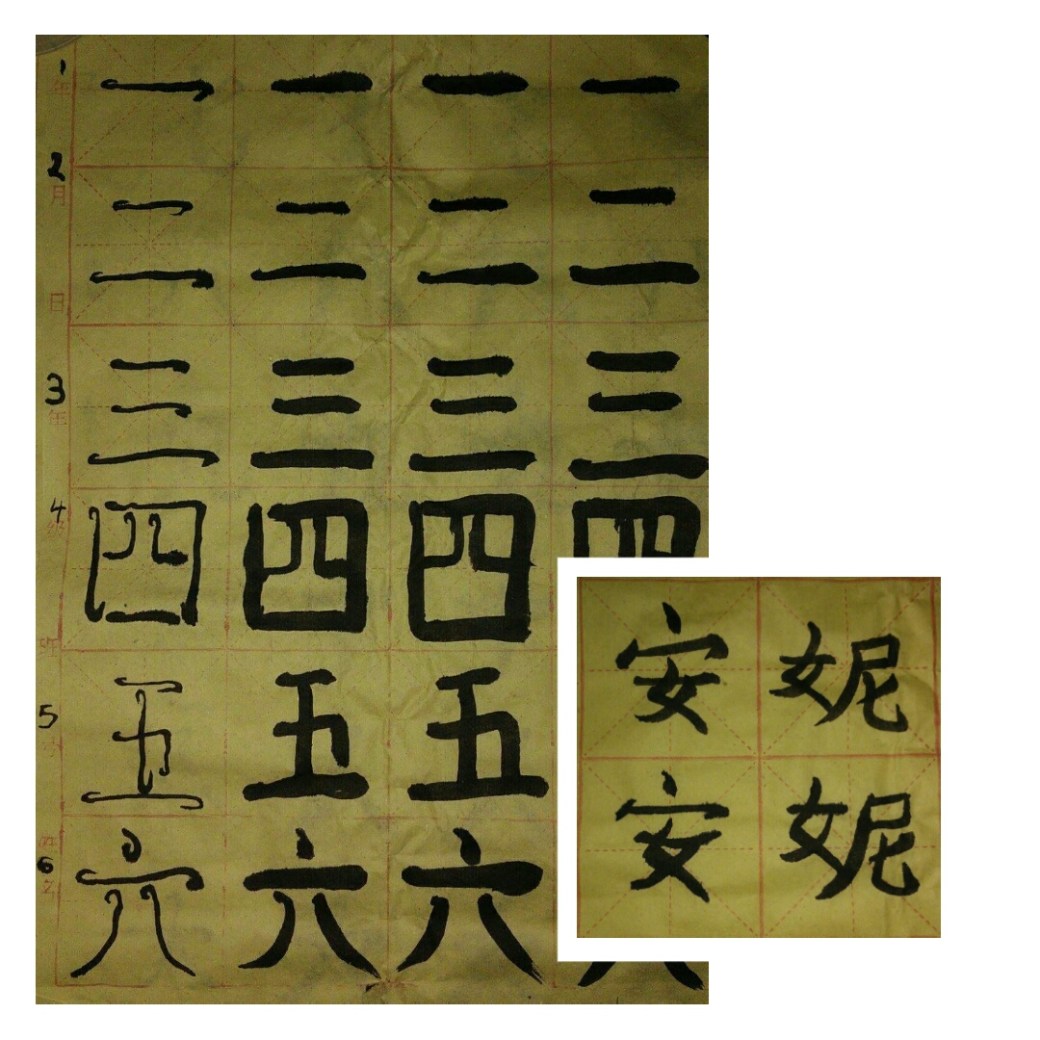 1 一 一 一 一
2 二 二 二 二
3 三 三 三 三
4 四 四 四 四
5 五 五 五
6 六 六 六
安 妮
安 妮